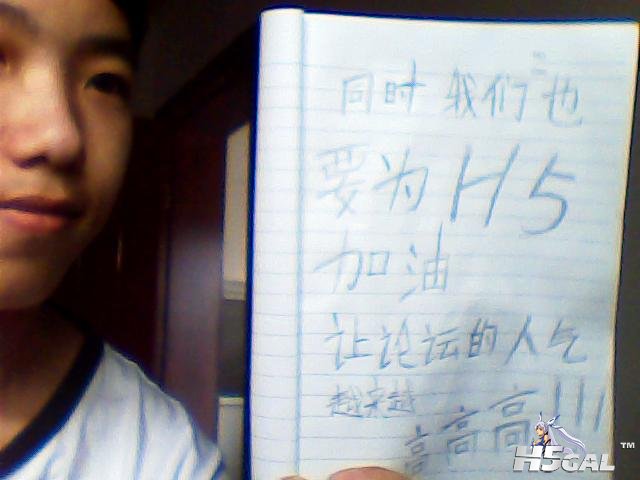 同时我们也
要为H5
加油
让论坛的人气
越来越
高高高!!!
H5GAL™